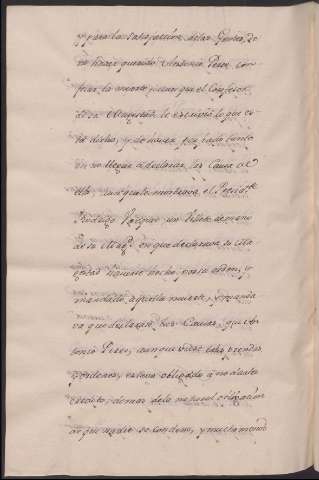 y para la satisfaccion de las Gentes, de
no haver querido Antonio Perez con
fesar la muerte, y caso que el Confesor
de su Magestad le escrivió lo que es
tá dicho, y de haver porfiado tanto
en no llegar á declarar las Causas de
ello; aunque le mostrava el Presid.te
Rodrigo Vazquez un Villete de mano
de su Mag.d en que declarava su Ma
gestad haverse hecho por su orden, y
mandado aquella muerte, y manda
va que declarase las Causas, que An
tonio Perez, aunque tales prendas
y ordenes, estava obligado á no darle
credito, demas de la natural obligacion
de que nadie se condene, y mucho menos